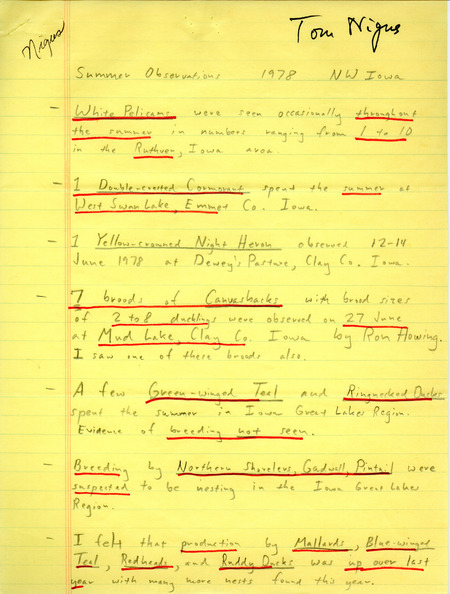 Nigus
Tom Nigus
Summer Observations 1978 NW Iowa
- White Pelicans were seen occasionally throughout
the summer in numbers ranging from 1 to 10
in the Ruthven, Iowa area.
- 1 Double-crested Cormorant spent the summer at
West Swan Lake, Emmet Co. Iowa.
- 1 Yellow-crowned Night Heron observed 12-14
June 1978 at Dewey's Pasture, Clay Co. Iowa.
- 7 broods of Canvasbacks with brood sizes
of 2 to 8 ducklings were observed on 27 June
at Mud Lake, Clay Co. Iowa by Ron Howing.
I saw one of these broods also.
- A few Green-winged Teal and Ringnecked Ducks
spent the summer in Iowa Great Lakes Region.
Evidence of breeding not seen.
- Breeding by Northern Shovelers, Gadwall, Pintail were
suspected to be nesting in the Iowa Great Lakes
Region.
- I felt that production by Mallards, Blue-winged
Teal, Redheads, and Ruddy Ducks was up over last
year with many more nests found this year.